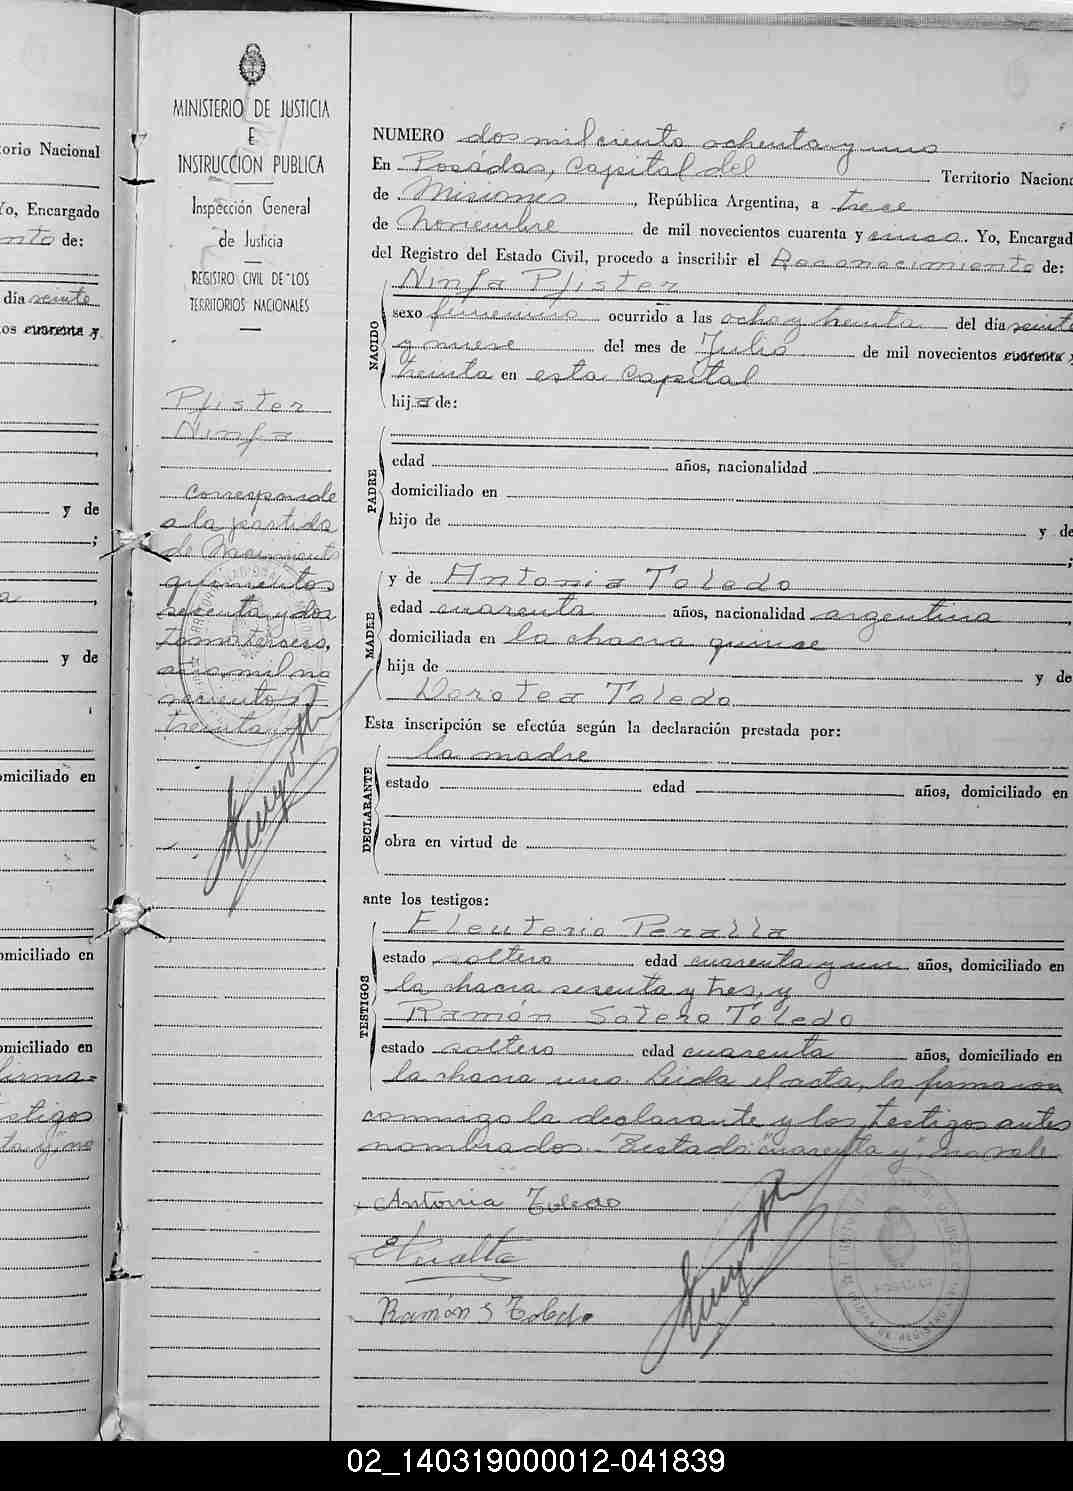 MINISTERIO DE JUSTICIA
E
INSTRUCCION PUBLICA
Inspección General
de Justicia
REGISTRO CIVIL DE LOS
TERRITORIOS NACIONALES
Pfister
Ninfa
Corresponde
a la partida
de Nacimiento
quinientos
sesenta y dos
tomo tercero,
año mil no
vecientos
treinta
NUMERO dos mil ciento ochenta y uno
En Posadas, capital del Territorio Naciona
de Misiones, República Argentina, a trece
de Noviembre de mil novecientos cuarenta y cinco. Yo, Encargad
del Registro del Estado Civil, procedo a inscribir el Reconocimiento de:
Ninfa Pfister
NACIDO
sexo femenino ocurrido a las ocho y treinta del día veinte
y nueve del mes de Julio de mil novecientos cuarenta y
treinta en esta Capital
hija de:
PADRE
edad años, nacionalidad
domiciliado en
hijo de y de
;
MADRE
y de Antonia Toledo
edad cuarenta años, nacionalidad argentina
domiciliada en la chacra quinse
hija de y de
Dorotea Toledo
Esta inscripción se efectúa según la declaración prestada por:
la madre
DECLARANTE
estado edad años, domiciliado en
obra en virtud de
ante los testigos:
TESTIGOS
Eleuterio Peralta
estado soltero edad cuarenta y un años, domiciliado en
la chacra sesenta y tres, y
Ramón Sotero Toledo
estado soltero edad cuarenta años, domiciliado en
la chacra uno. Leida el acta, la firmaron
conmigo la declarante y los testigos antes
nombrados. Testado: "cuarenta y" no vale.
Antonia Toledo
EPeralta
Ramón S Toledo
orio Nacional
Yo, Encargado
de:
día veinte
os cuarenta y
y de
;
y de
omiciliado en
omiciliado en
omiciliado en
firma=
estigos
02_140319000012-041839